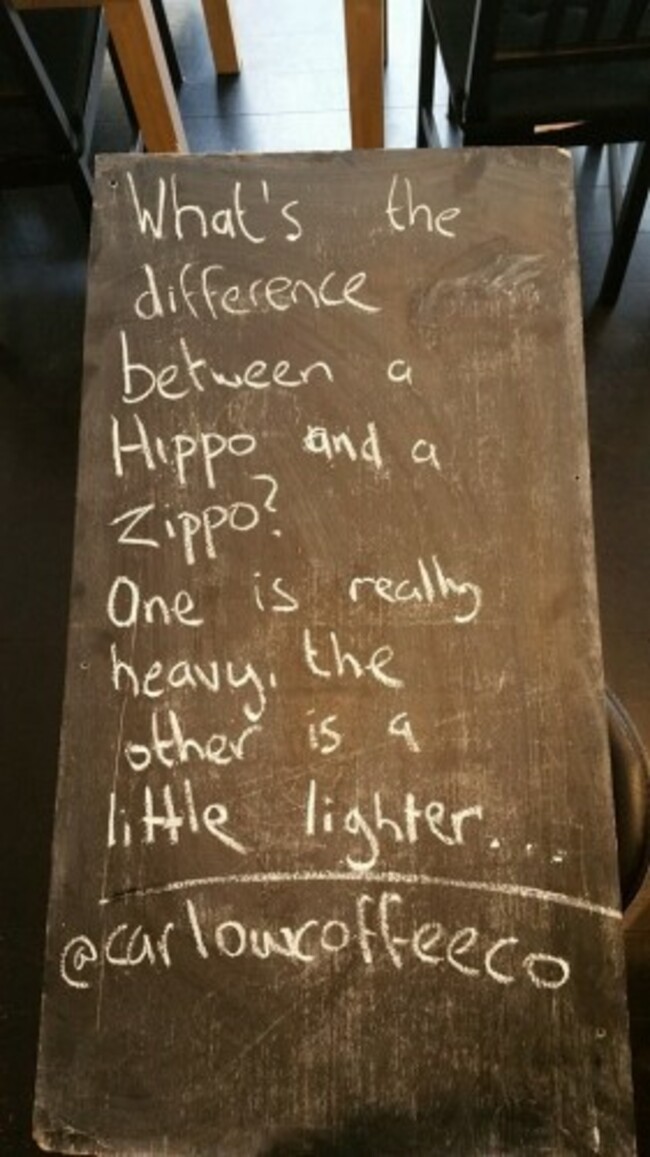 What's the
difference
between a
Hippo and a
Zippo?
One is really
heavy, the
other is a
little lighter...
@carlowcoffeeco